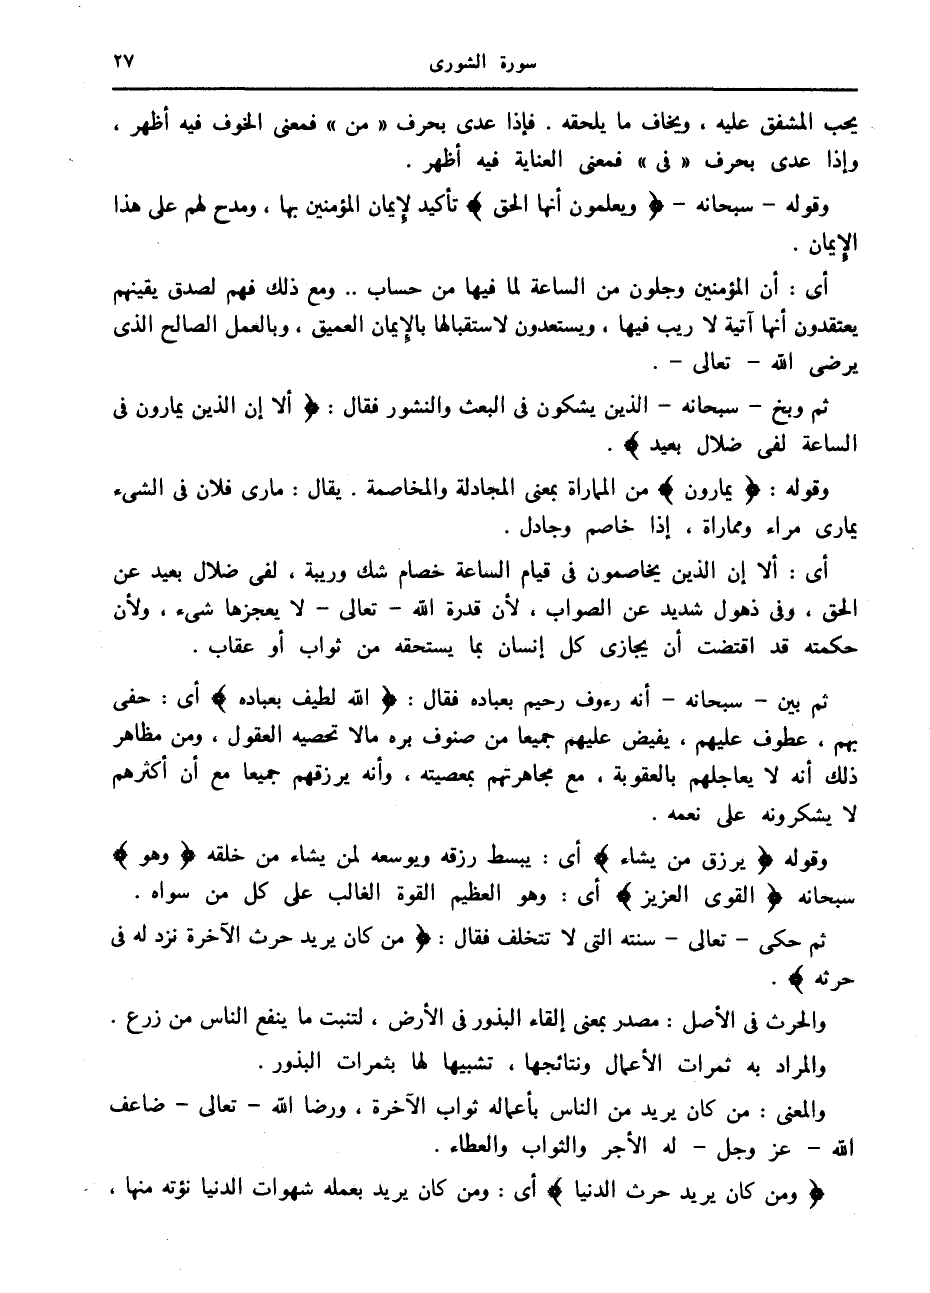 سورة الشورى ٢٧
يحب المشفق عليه ، ويخاف ما يلحقه . فإذا عدى بحرف « من » فمعنى الخوف فيه أظهر ،
وإذا عدى بحرف « فى » فمعنى العناية فيه أظهر .
وقوله – سبحانه – ﴿ ويعلمون أنها الحق ﴾ تأكيد لإيمان المؤمنين بها ، ومدح لهم على هذا
الإيمان .
أى : أن المؤمنين وجلون من الساعة لما فيها من حساب .. ومع ذلك فهم لصدق يقينهم
يعتقدون أنها آتية لا ريب فيها ، ويستعدون لاستقبالها بالإيمان العميق ، وبالعمل الصالح الذى
يرضى الله – تعالى – .
ثم وبخ – سبحانه – الذين يشكون فى البعث والنشور فقال : ﴿ ألا إن الذين يمارون فى
الساعة لفى ضلال بعيد ﴾ .
وقوله : ﴿ يمارون ﴾ من المماراة بمعنى المجادلة والمخاصمة . يقال : مارى فلان فى الشىء
يمارى مراء ومماراة ، إذا خاصم وجادل .
أى : ألا إن الذين يخاصمون فى قيام الساعة خصام شك وريبة ، لفى ضلال بعيد عن
الحق ، وفى ذهول شديد عن الصواب ، لأن قدرة الله – تعالى – لا يعجزها شىء ، ولأن
حكمته قد اقتضت أن يجازى كل إنسان بما يستحقه من ثواب أو عقاب .
ثم بين – سبحانه – أنه رءوف رحيم بعباده فقال : ﴿ الله لطيف بعباده ﴾ أى : حفى
بهم ، عطوف عليهم ، يفيض عليهم جميعا من صنوف بره مالا تحصيه العقول ، ومن مظاهر
ذلك أنه لا يعاجلهم بالعقوبة ، مع مجاهرتهم بمعصيته ، وأنه يرزقهم جميعا مع أن أكثرهم
لا يشكرونه على نعمه .
وقوله ﴿ يرزق من يشاء ﴾ أى : يبسط رزقه ويوسعه لمن يشاء من خلقه ﴿ وهو ﴾
سبحانه ﴿ القوى العزيز ﴾ أى : وهو العظيم القوة الغالب على كل من سواه .
ثم حكى – تعالى – سنته التى لا تتخلف فقال : ﴿ من كان يريد حرث الآخرة نزد له فى
حرثه ﴾ .
والحرث فى الأصل : مصدر بمعنى إلقاء البذور فى الأرض ، لتنبت ما ينفع الناس من زرع .
والمراد به ثمرات الأعمال ونتائجها ، تشبيها لها بثمرات البذور .
والمعنى : من كان يريد من الناس بأعماله ثواب الآخرة ، ورضا الله – تعالى – ضاعف
الله – عز وجل – له الأجر والثواب والعطاء .
﴿ ومن كان يريد حرث الدنيا ﴾ أى : ومن كان يريد بعمله شهوات الدنيا نؤته منها ،